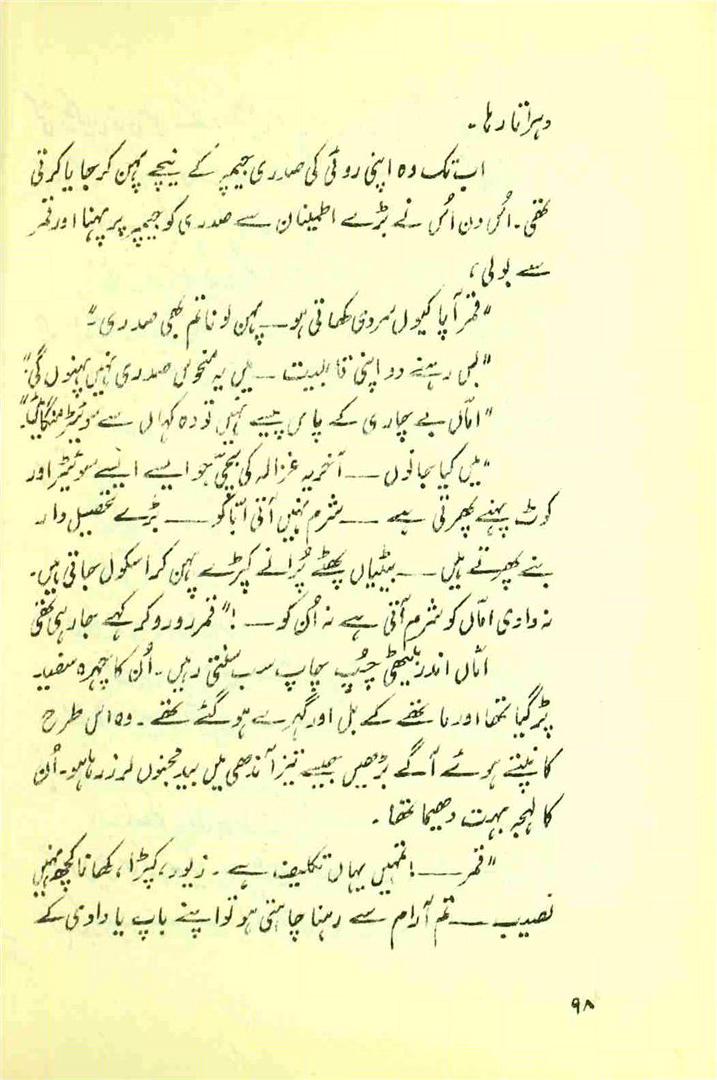 دہراتا رہا ۔
اب تک وہ اپنی روئی کی صدری جیمپر کے نیچے پہن کر جایا کرتی
تھی ۔ اُس دن اُس نے بڑے اطمینان سے صدری کو جیمپر پر پہنا اور قمر
سے بولی ،
"قمر آپا کیوں سردی کھاتی ہو ــــ پہن لو نا تم بھی صدری ۔"
"بس رہنے دو اپنی قابلیت ـــ میں یہ منحوس صدری نہیں پہنوں گی"
"امّاں بے چاری کے پاس پیسے نہیں تو وہ کہاں سے سوئیٹر منگائیں"
"میں کیا جانوں ــــ آخر یہ غزالہ کی بچّی جو ایسے ایسے سوئیٹر اور
کوٹ پہنے پھرتی ہے ــــ شرم نہیں آتی ابّا کو ــــ بڑے تحصیل دار
بنے پھرتے ہیں ــــ بیٹیاں پھٹے پُرانے کپڑے پہن کر اسکول جاتی ہیں ۔
نہ دادی امّاں کو شرم آتی ہے نہ اُن کو ــــ !" قمر رو رو کر کہے جا رہی تھی
امّاں اندر بیٹھی چُپ چاپ سب سنتی رہیں ۔ اُن کا چہرہ سفید
پڑ گیا تھا اور ماتھے کے بل اور گہرے ہو گئے تھے ۔ وہ اس طرح
کانپتے ہوئے آگے بڑھیں جیسے تیز آندھی میں بید مجنوں لرز رہا ہو ۔ اُن
کا لہجہ بہت دھیما تھا ۔
"قمر ــــ ! تمہیں یہاں تکلیف ہے ۔ زیور ، کپڑا ، کھانا کچھ نہیں
نصیب ــــ تم آرام سے رہنا چاہتی ہو تو اپنے باپ یا دادی کے
۹۸